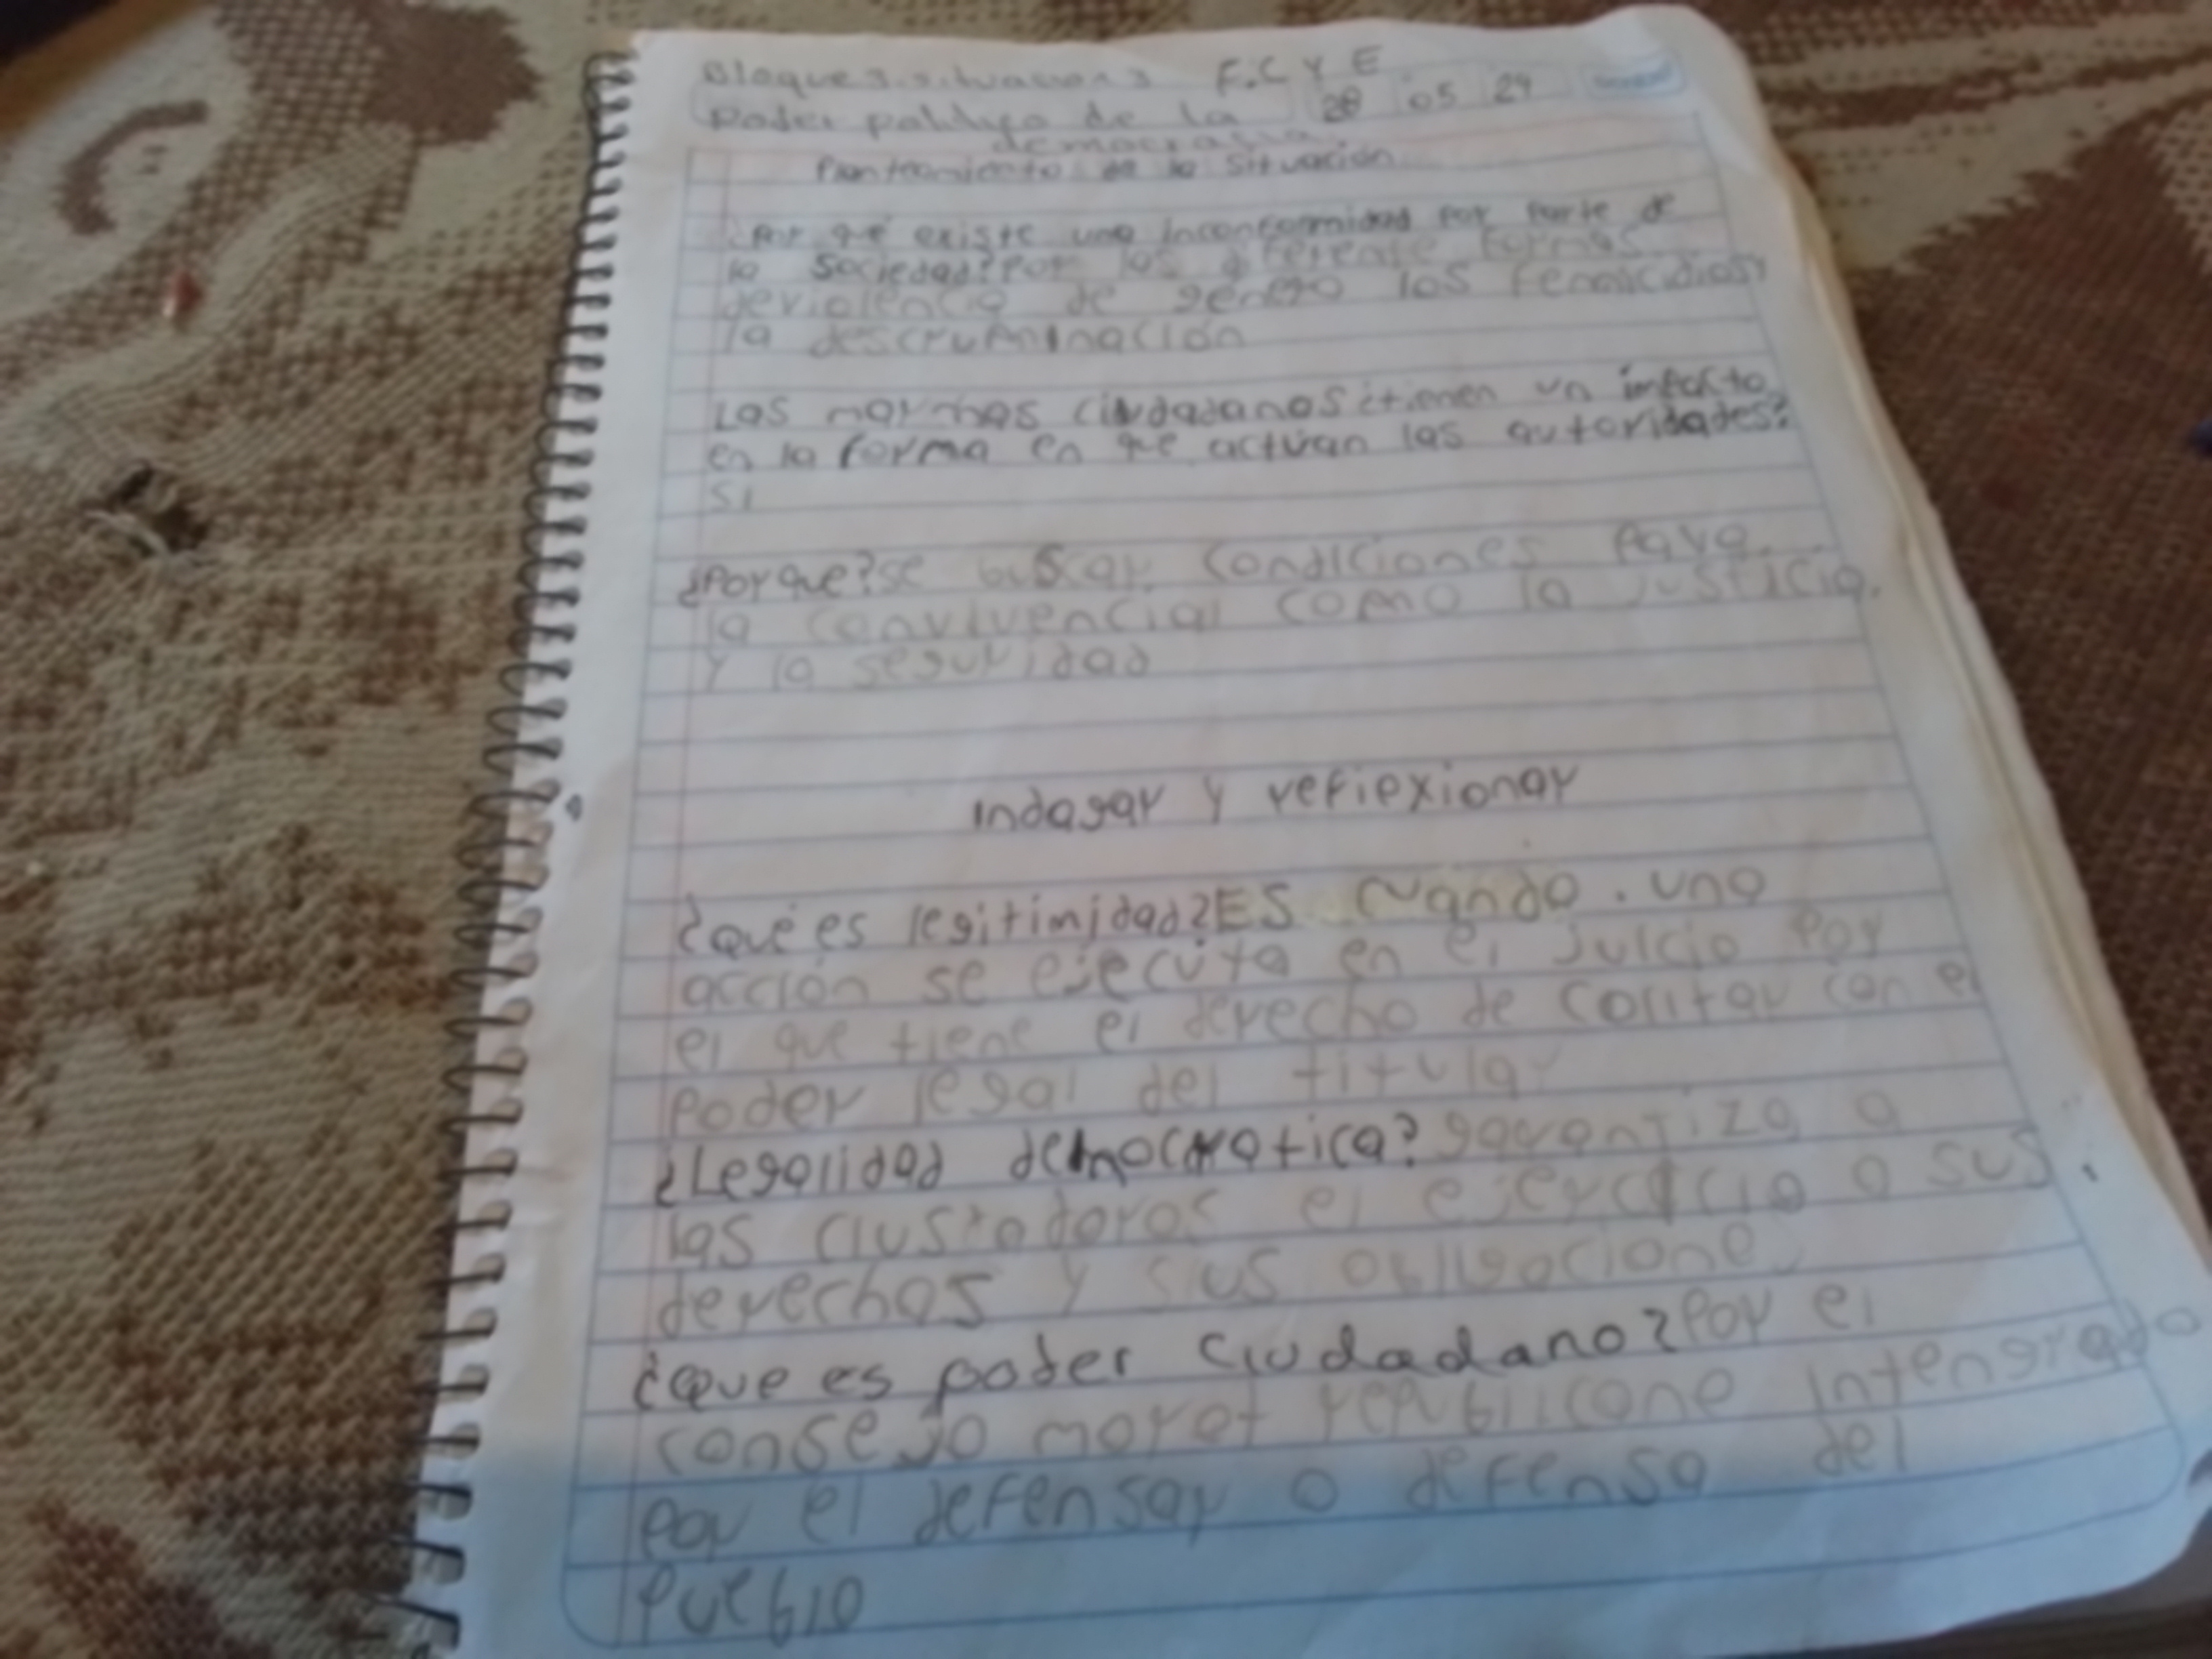 Bloque 3. situacion 3 F.C Y E
Poder politico de la 28 05 24
democracia
Planteamiento de la situación
¿Por qué existe una inconformidad por parte de
la sociedad? Por las diferente formas
de violencia de género los femicidios
la descruminación
Las normas ciudadanas ¿tienen un impacto
en la forma en que actúan las autoridades?
SI
¿Por que? se buscar condiciones para
la convivencia como la justicia.
Y la seguridad
Indagar y reflexionar
¿que es legitimidad? ES cuando. una
acción se ejecuta en el juicio por
el que tiene el derecho de con el
poder legal del titular
¿Legalidad democratica? garantiza a
las el ejercicio o sus
derechos y sus obligaciones
¿que es poder ciudadano? Por el
consejo moral republicone intengrado
por el defensar o defensa del
Pueblo